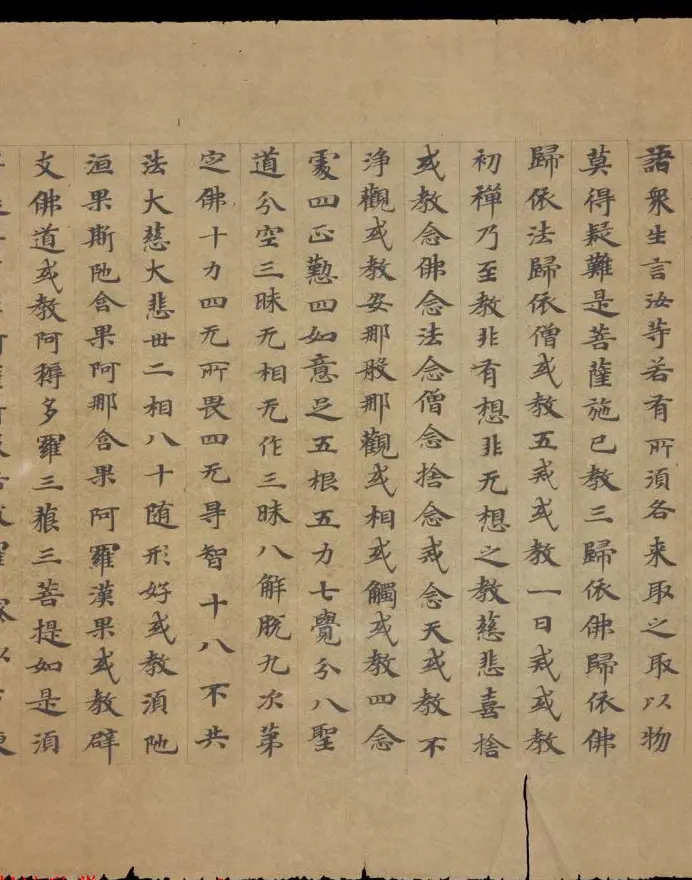 語衆生言汝等若有所湏各来取之取以物
莫得疑難是菩薩施已教三歸依佛歸依佛
歸依法歸依僧或教五戒或教一日戒或教
初禪乃至教非有想非无想之教慈悲喜捨
或教念佛念法念僧念捨念戒念天或教不
浄觀或教安那般那觀或相或觸或教四念
處四正懃四如意足五根五力七覺分八聖
道分空三昧无相无作三昧八解脫九次第
定佛十力四无所畏四无㝵智十八不共
法大慈大悲丗二相八十随形好或教湏陁
洹果斯陁含果阿那含果阿羅漢果或教辟
支佛道或教阿耨多羅三藐三菩提如是湏